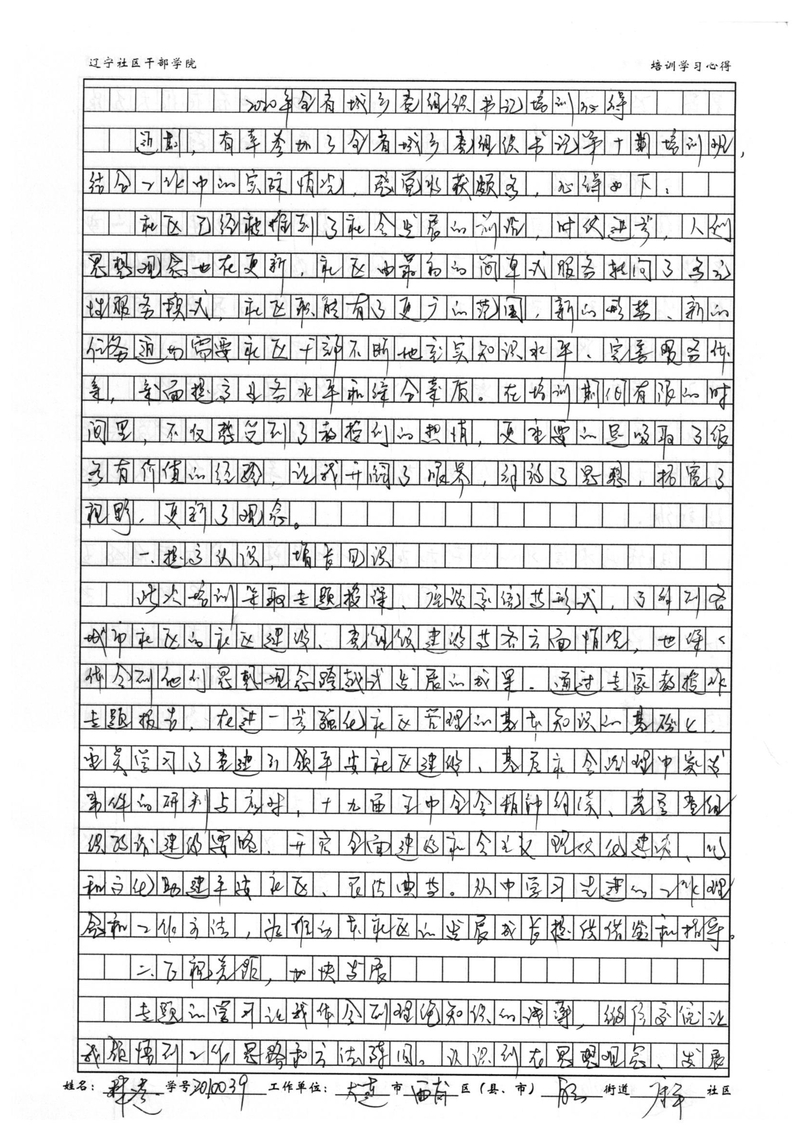 辽宁社区干部学院 培训学习心得
2020年全省城乡党组织书记培训心得
近期，有幸参加了全省城乡党组织书记第十期培训班，
结合工作中的实际情况，感觉收获颇多，心得如下：
社区已经被推到了社会发展的前沿，时代进步，人们
思想观念也在更新，社区由最初的简单式服务转向了多元
性服务模式，社区职能有了更广的范围，新的形势、新的
任务迫切需要社区干部不断地充实知识水平、完善服务体
系，全面提高业务水平和综合素质。在培训期间有限的时
间里，不仅感觉到了教授们的热情，更重要的是吸取了很
多有价值的经验，让我开阔了眼界，解放了思想，拓宽了
视野，更新了观念。
一、提高认识，增长见识
此次培训采取专题授课、座谈交流等形式，了解到各
城市社区的社区建设、党组织建设等各方面情况，也深深
体会到他们思想观念跨越式发展的成果。通过专家教授作
专题报告，在进一步强化社区管理的基本知识的基础上，
重点学习了党建引领平安社区建设、基层社会治理中突发
事件的研判与应对，十九届五中全会精神解读、基层党组
织政治建设要略、开启全面建设社会主义现代化建设、
和文化助建平安社区、民法典等。从中学习先进的工作理
念和工作方法，为推动本社区的发展成长提供借鉴和指导。
二、正视差距，加快发展
专题的学习让我体会到理论知识的博厚，经验交流让
我领悟到工作思路和方法路问。认识到在思想观念、发展
姓名： 学号2010039 工作单位：大连市 西岗区（县、市） 街道 社区